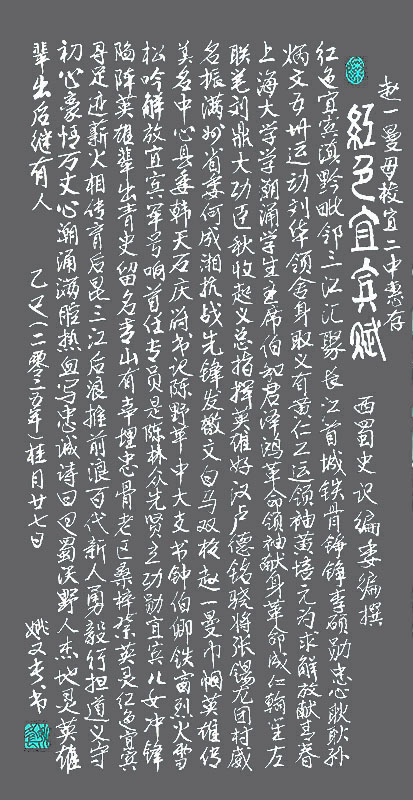 赵一曼母校宜二中惠存
红色宜宾赋
西蜀史识编委编撰
红色宜宾滇黔毗邻三江汇聚长江首城铁骨铮锋李硕勋忠心耿耿孙
炳文五卅运动刘华领舍身取义有黄仁工运领袖黄培元为求解放献青春
上海大学学潮涌学生主席伯知君泽鸿革命领袖献身革命成仁翰笙左
联茗刘鼎大功臣秋收起义总指挥英雄好汉卢德铭骁将张锡龙团村威
名振满州省委何成湘抗战先锋发檄文白马双枪赵一曼巾帼英雄传
美名中心县委韩天石庆府书记陈野苹中大支书钟伯卿铁窗烈火雪
松吟解放宜宾军号响首任专员是陈林众先贤立功勋宜宾儿女冲锋
陷阵英雄辈出青史留名青山有幸埋忠骨老区桑梓祭英灵红色宜宾
寻足迹薪火相传育后昆三江后浪推前浪百代新人勇毅行担道义守
初心豪情万丈心潮涌满腔热血写忠诚诗曰四蜀汉野人杰地灵英雄
辈出后继有人
乙巳(二零二五年)桂月廿七日
姚又春书